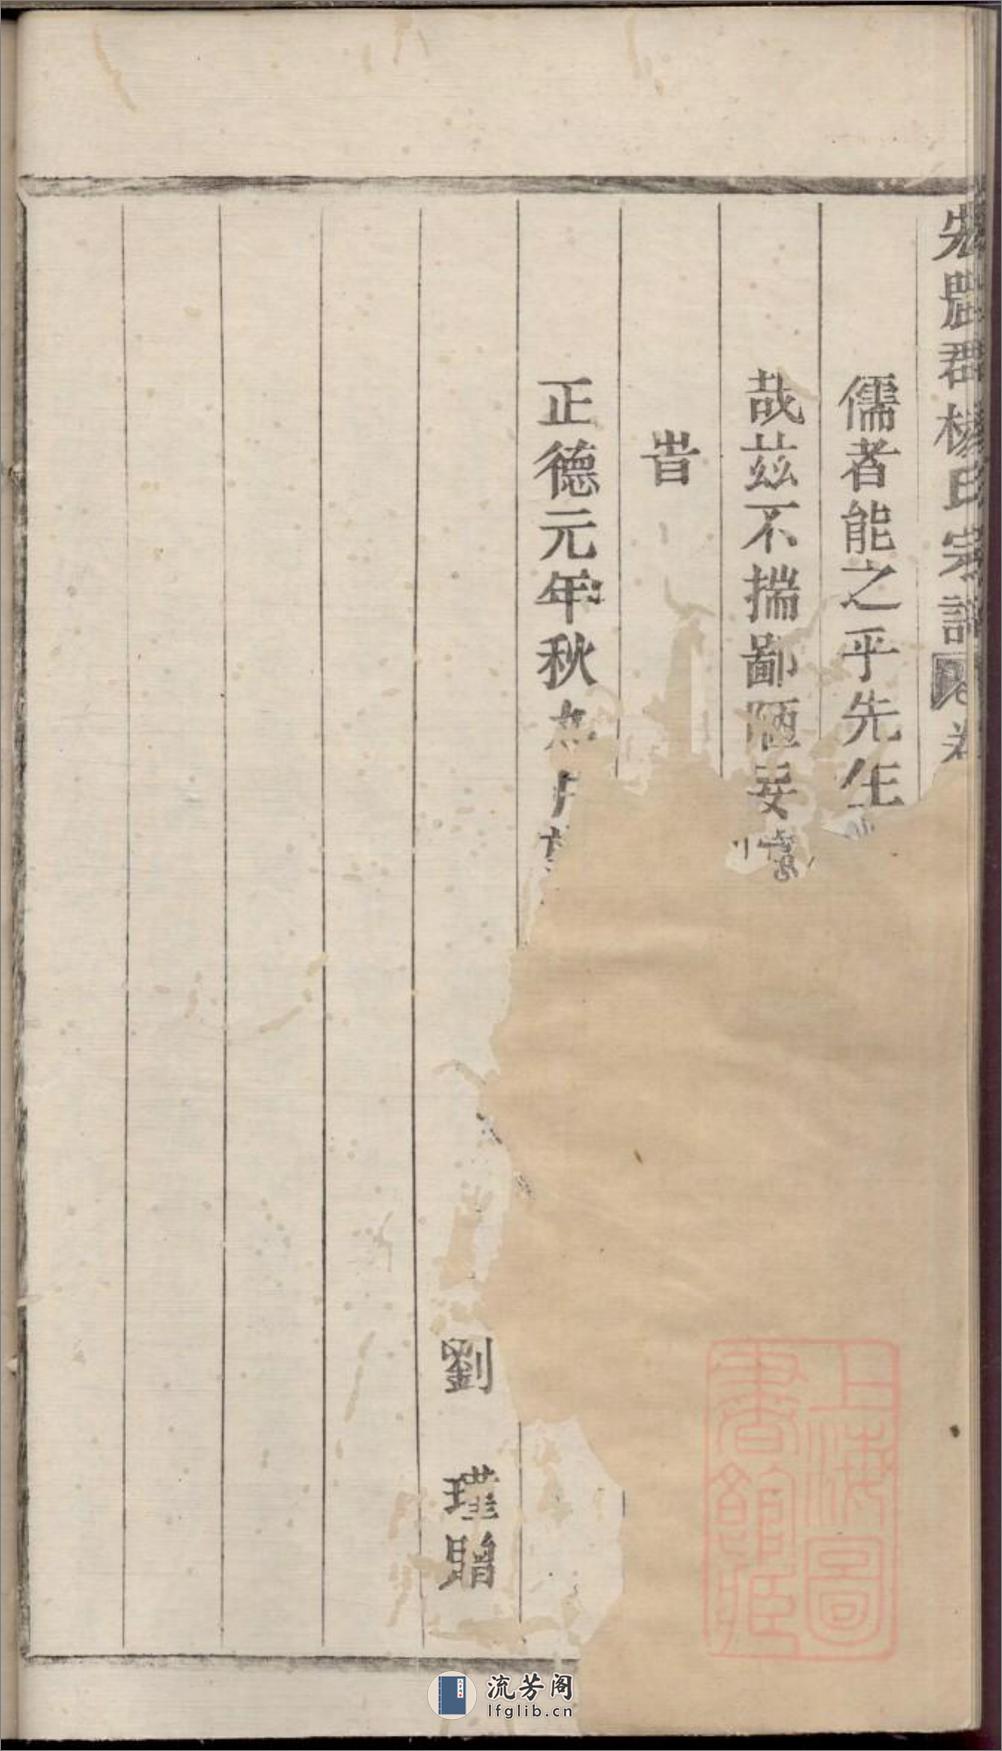 農郡楊氏宗譜 卷
儒者能之乎先生
哉兹不揣鄙陋妄
旹
正德元年秋
劉 瑾贈
上海圖書館藏
流芳阁
lfglib.cn